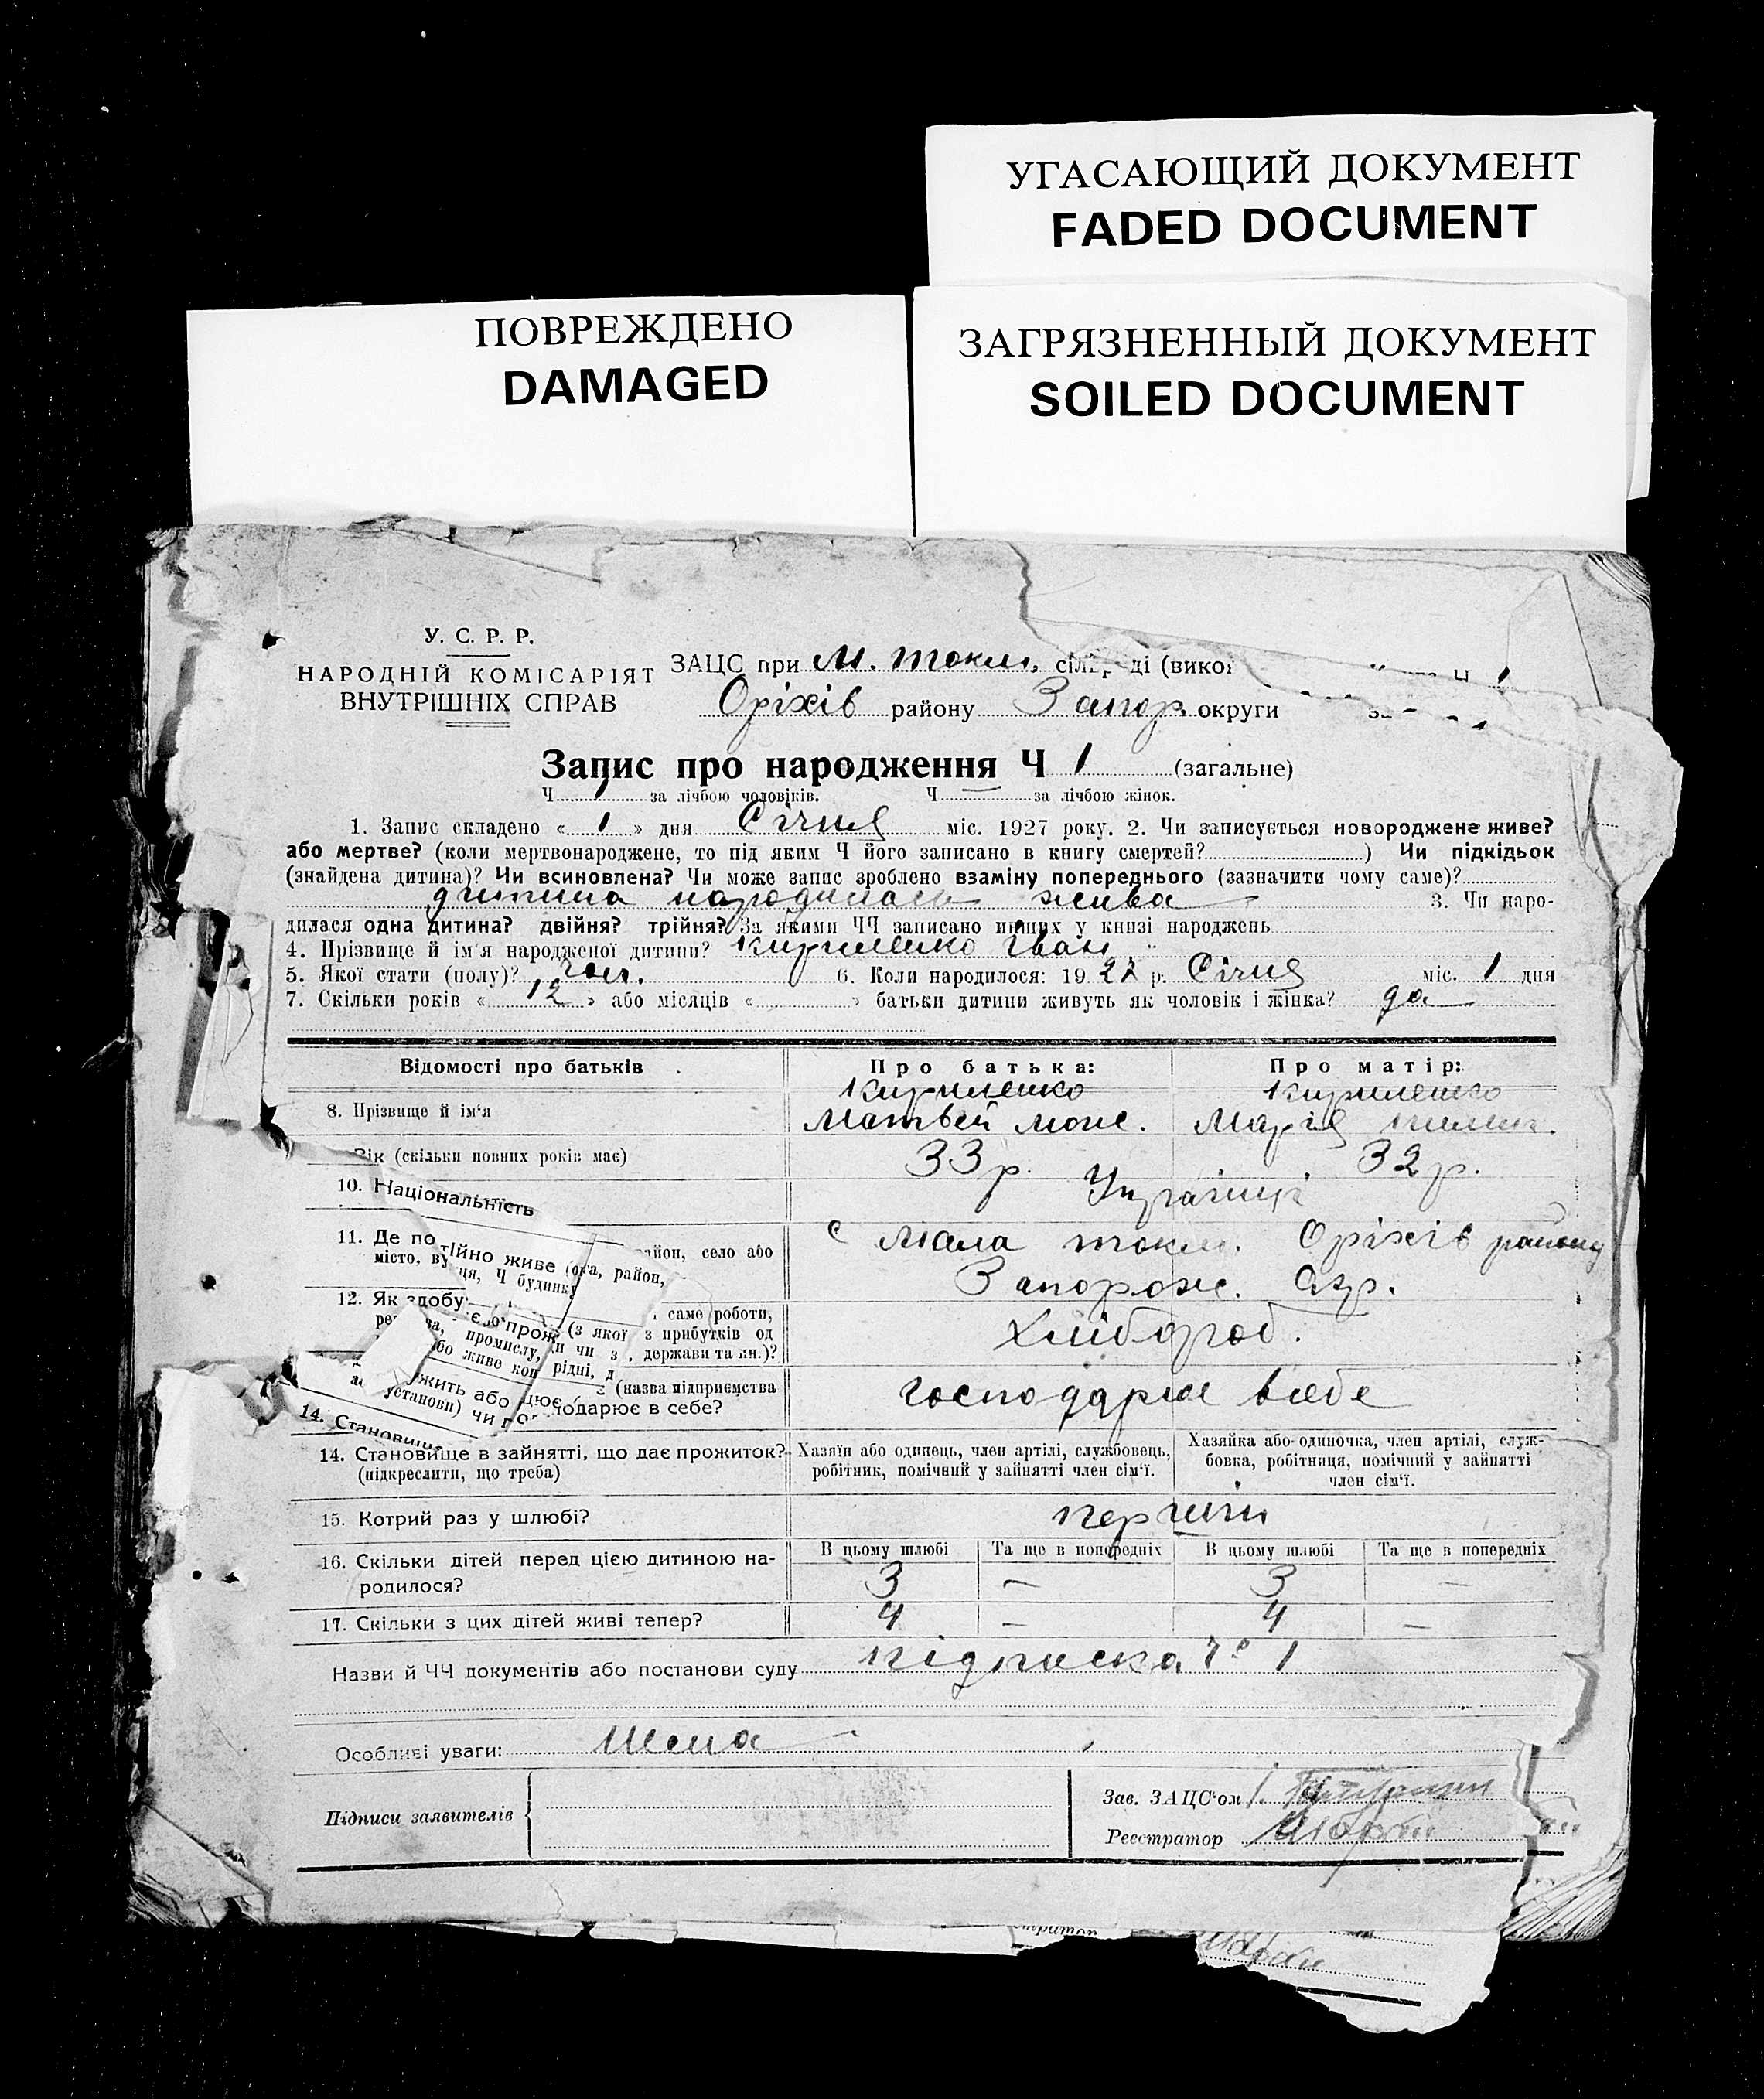 УГАСАЮЩИЙ ДОКУМЕНТ
FADED DOCUMENT
ПОВРЕЖДЕНО
DAMAGED
ЗАГРЯЗНЕННЫЙ ДОКУМЕНТ
SOILED DOCUMENT
У. С. Р. Р.
НАРОДНІЙ КОМІСАРІЯТ
ВНУТРІШНІХ СПРАВ
ЗАЦС при М. Токм. сіл
Оріхів району Запор. округи
Запис про народження Ч 1 (загальне)
Ч 1 за лічбою чоловіків. Ч — за лічбою жінок.
1. Запис складено « 1 » дня Січня міс. 1927 року. 2. Чи записується новороджене живе?
або мертве? (коли мертвонароджене, то під яким Ч його записано в книгу смертей? ) Чи підкідьок
(знайдена дитина)? Чи всиновлена? Чи може запис зроблено взаміну попереднього (зазначити чому саме)?
дитина народилась жива 3. Чи наро-
дилася одна дитина? двійня? трійня? За якими ЧЧ записано инших у книзі народжень
4. Прізвище й ім'я народженої дитини? Кириленко Іван
5. Якої стати (полу)? чол. 6. Коли народилося: 19 27 р. Січня міс. 1 дня
7. Скільки років « 12 » або місяців « » батьки дитини живуть як чоловік і жінка? да
Відомості про батьків
Про батька:
Про матір:
8. Прізвище й ім'я
Кириленко
Матвей
Кириленко
Марія
Вік (скільки повних років має) 33 р. 32 р.
10. Національність Українці
11. Де по тійно живе район, село або
місто,
с Мала Токм. Оріхів району
Запорож. Окр.
12. Як здобу саме роботи,
з прибутків од
держави та ин.)?
Хлібороб.
(назва підприємства
установи) чи господарює в себе?
господарює в себе
14. Становище
14. Становище в зайнятті, що дає прожиток?
(підкреслити, що треба)
Хазяїн або одинець, член артілі, службовець,
робітник, помічний у зайнятті член сім'ї.
Хазяйка або одиночка, член артілі, служ-
бовка, робітниця, помічний у зайнятті
член сім'ї.
15. Котрий раз у шлюбі? перший
16. Скільки дітей перед цією дитиною на-
родилося?
В цьому шлюбі Та ще в попередніх В цьому шлюбі Та ще в попередніх
3 — 3 —
17. Скільки з цих дітей живі тепер? 4 — 4 —
Назви й ЧЧ документів або постанови суду підписка № 1
Особливі уваги: Нема
Підписи заявителів
Зав. ЗАЦС'ом
Реєстратор